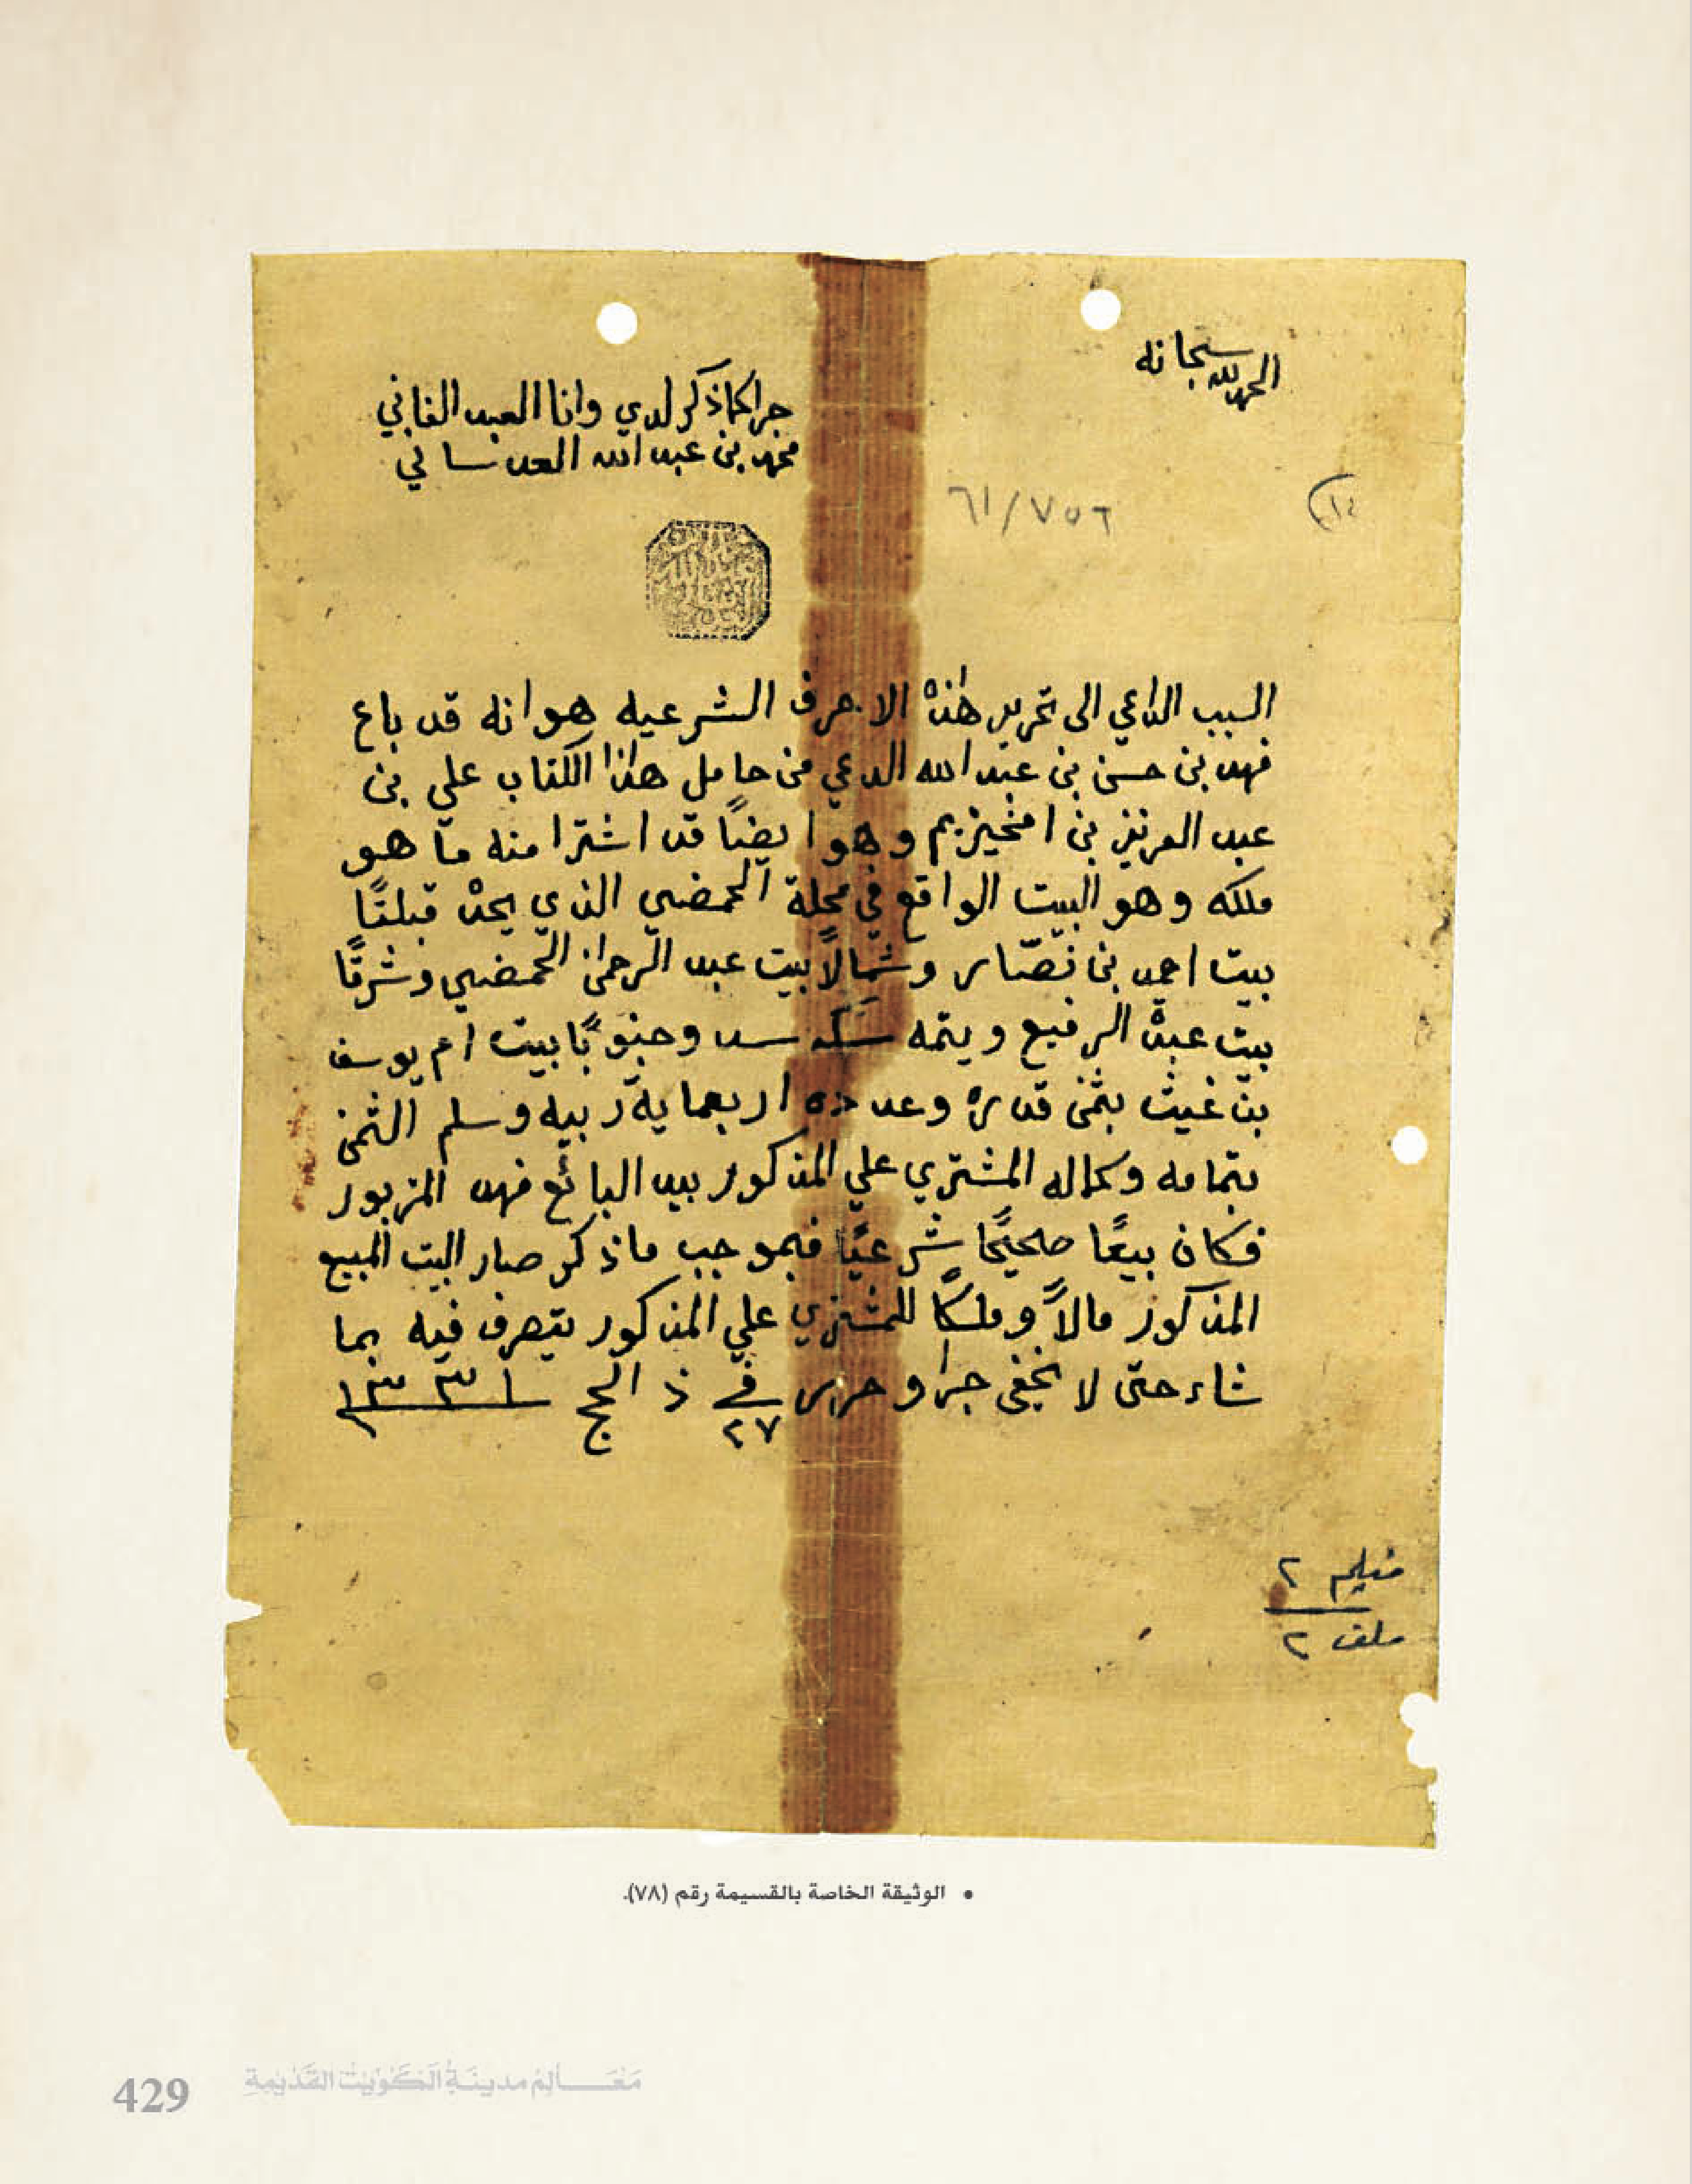 الحمد لله سبحانه
جرا كما ذكر لدي وانا العبد الفاني
محمد بن عبد الله العدساني
٦١/٧٥٦
السبب الداعي الى تحرير هذه الاحرف الشرعيه هو انه قد باع
فهد بن حسن بن عبد الله الدعي من حامل هذا الكتاب علي بن
عبد العزيز بن امخيزيم وهو ايضًا قد اشترا منه ما هو
ملكه وهو البيت الواقع في محلة الحمضي الذي يحده قبلتًا
بيت احمد بن نصّار وشمالًا بيت عبد الرحمن الحمضي وشرقًا
بيت عبد الرفيع ويتمه سكه سد وجنوبًا بيت ام يوسف
بن غيث بثمن قدره وعدده اربعماية ربيه وسلم الثمن
بتمامه وكماله المشتري علي المذكور بيد البائع فهد المزبور
فكان بيعًا صحيحًا شرعيًا فبموجب ماذكر صار البيت المبيع
المذكور مالًا وملكًا للمشتري علي المذكور يتصرف فيه بما
شاء حتى لا يخفى جرا وحرر في ٢٧ ذ الحج ١٣٣١
فيلم ٢
ملف ٢
• الوثيقة الخاصة بالقسيمة رقم (٧٨).
429 مَعَالِمُ مدينَةِ الكُوَيْت القَدْيمَةِ